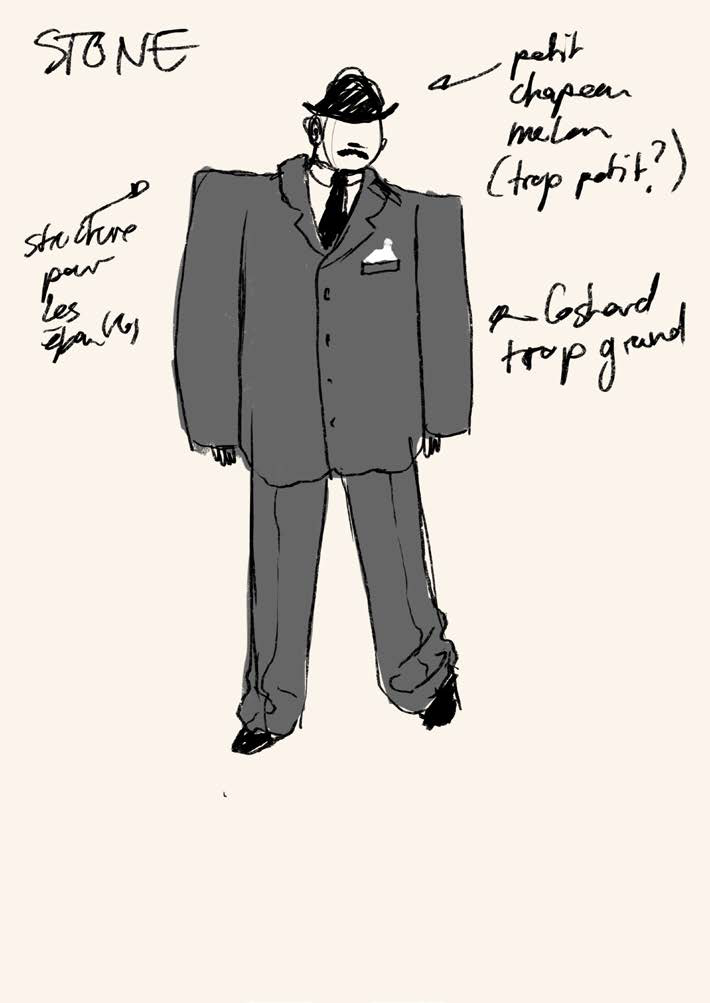 STONE
petit
chapeau
melon
(trop petit?)
structure
pour
les
Costard
trop grand